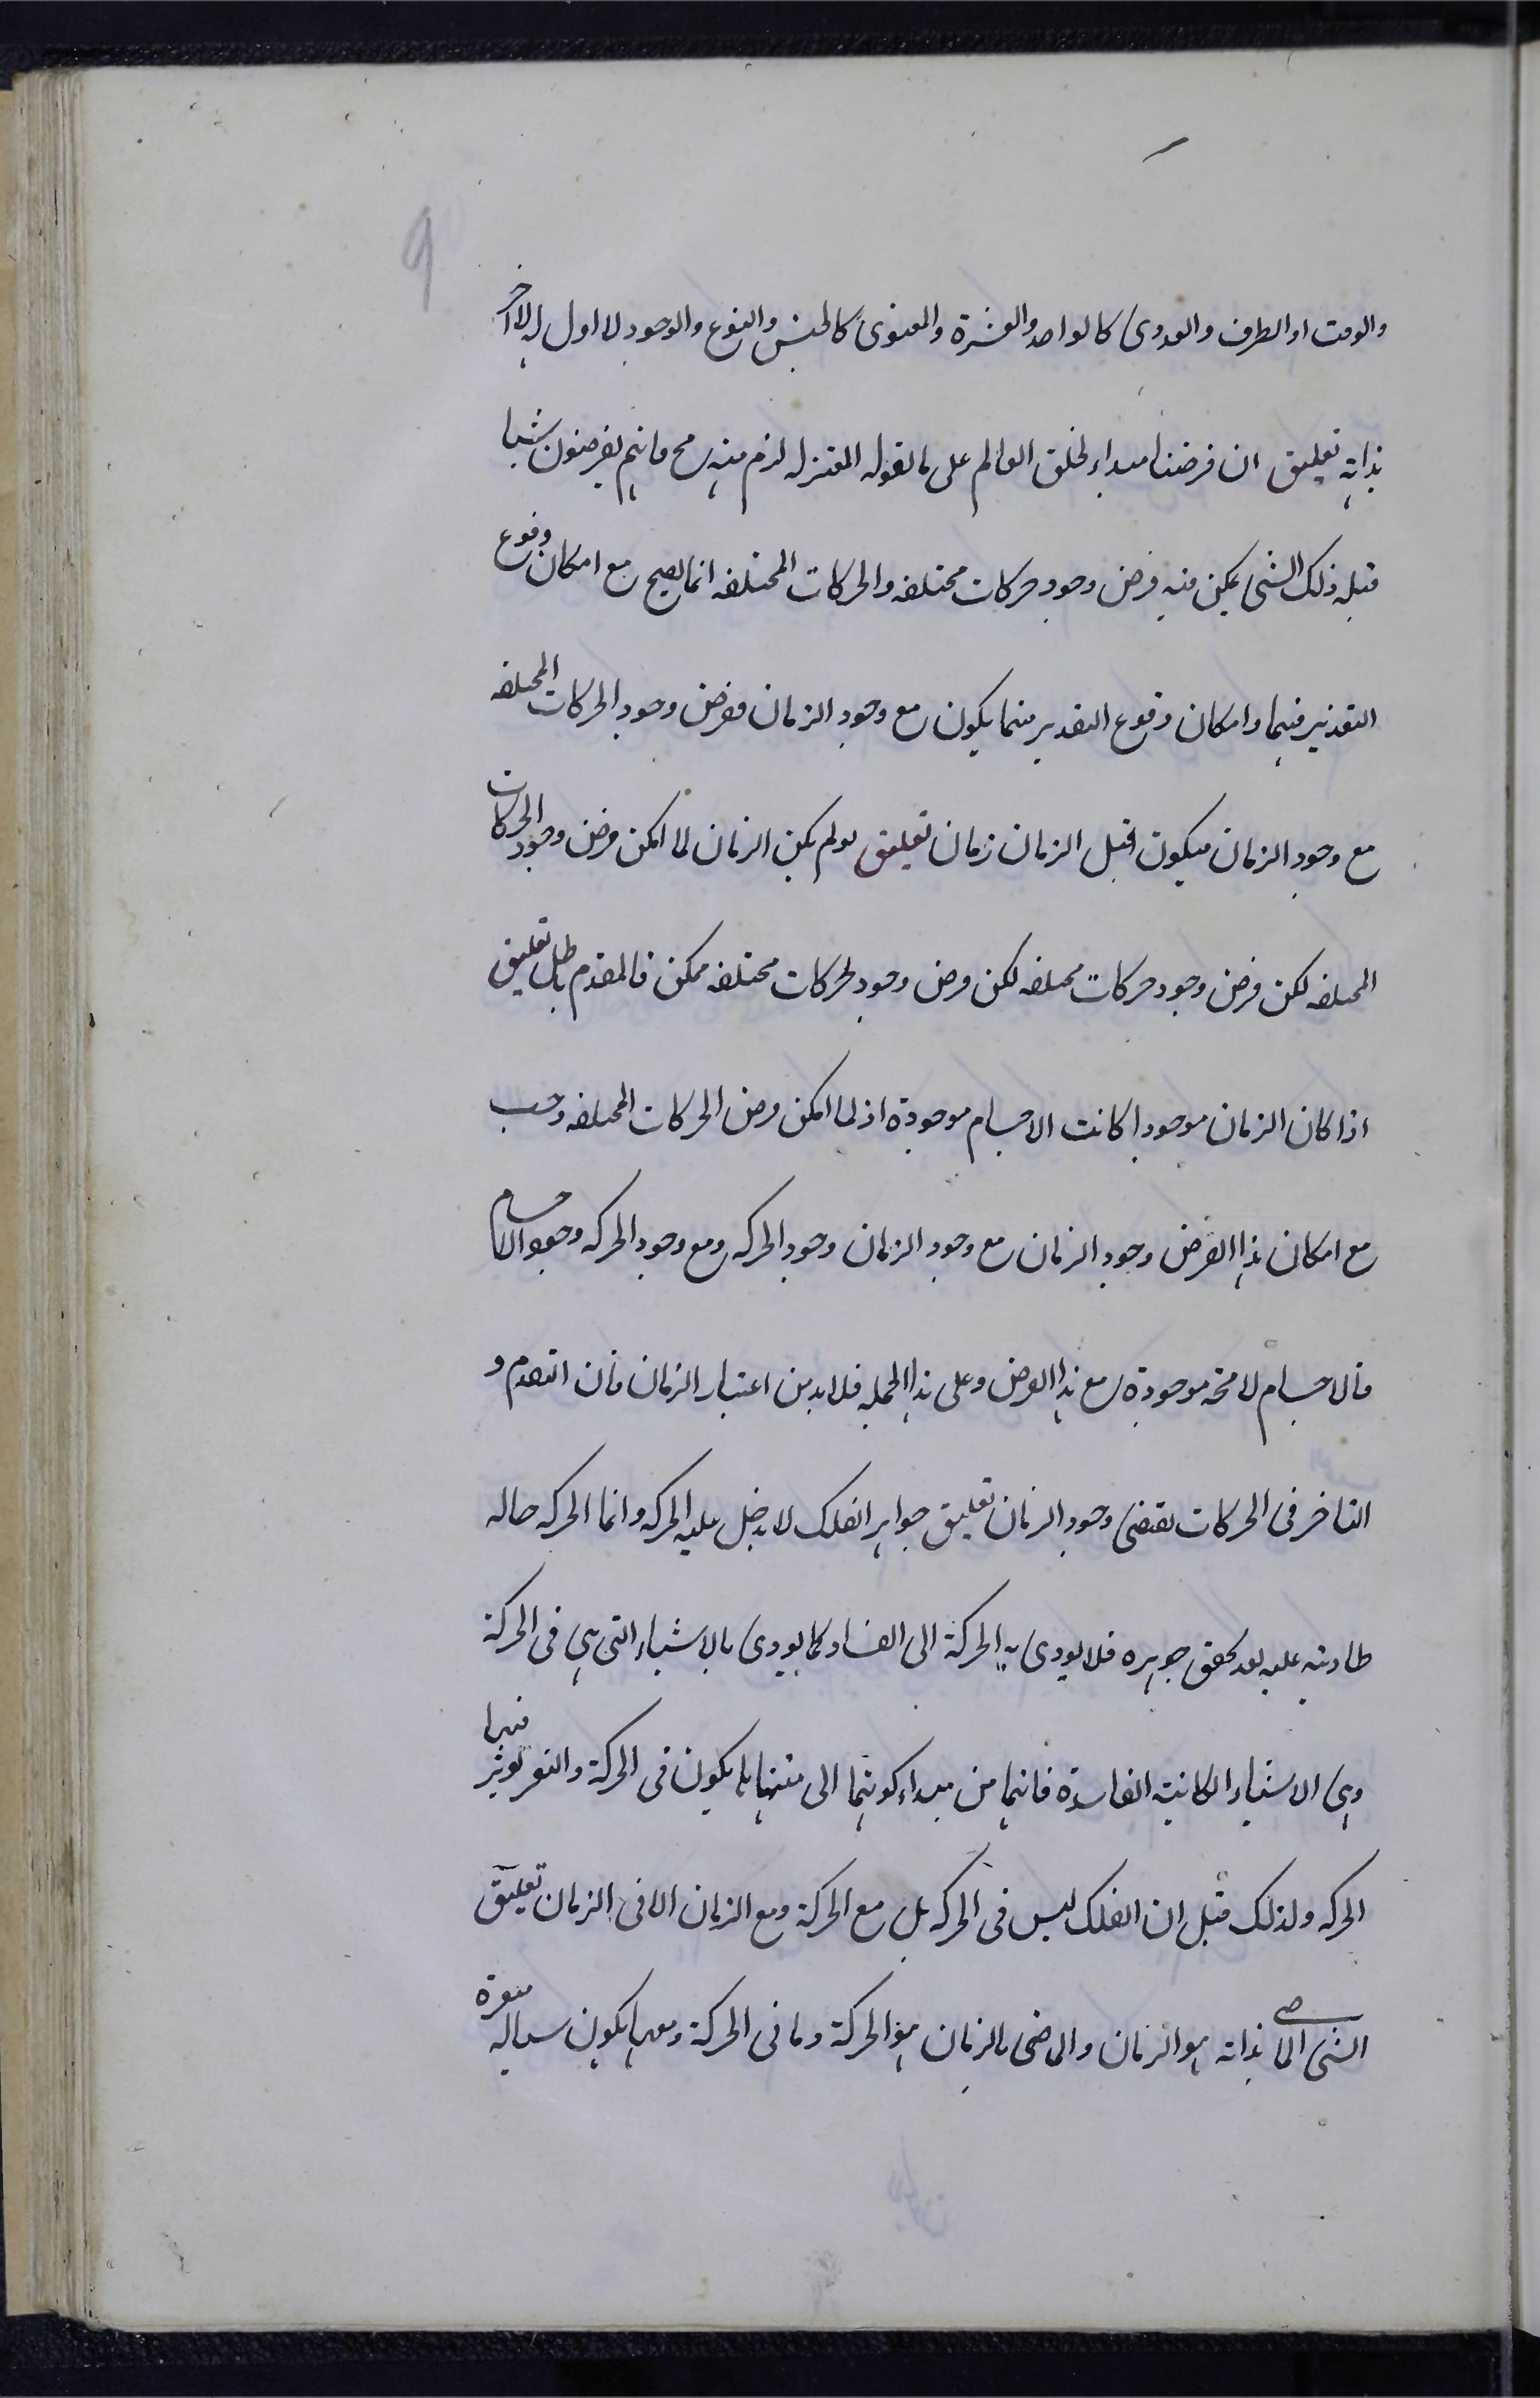 9
والوقت او الطرف والعددى كالواحد والعشرة والمعنوى كالجنس والنوع والوجود لا اول له لا آخر
بذاته تعليق ان فرضنا مبداء لخلق العالم على ما تقوله المعتزله لزم منه مح فانهم يفرضون شيا
قبله ذلك الشى يمكن فيه فرض وجود حركات مختلفه والحركات المختلفه انما يصح مع امكان وقوع
التقدير فيها وامكان وقوع التقدير فيها يكون مع وجود الزمان ففرض وجود الحركات المختلفه
مع وجود الزمان فيكون قبل الزمان زمان تعليق لو لم يكن الزمان لما امكن فرض وجود الحركات
المختلفه لكن فرض وجود حركات مختلفه لكن فرض وجود لحركات مختلفه ممكن فالمقدم باطل تعليق
اذا كان الزمان موجودا كانت الاجسام موجودة اذ لما امكن فرض الحركات المختلفه وجب
مع امكان هذا الفرض وجود الزمان مع وجود الزمان وجود الحركه ومع وجود الحركه وجود الاجسام
فالاجسام لا محة موجودة مع هذا الفرض وعلى هذا الجمله فلا بد من اعتبار الزمان فان التقدم و
التاخر فى الحركات يقتضى وجود الزمان تعليق جواهر الفلك لا يدخل عليه الحركه وانما الحركه حاله
طارئه عليه بعد تحقق جوهره فلا يودى به الحركة الى الفساد كما يودى بالاشياء التى هى فى الحركة
وهى الاشياء الكائنة الفاسدة فانها من مبداء كونها الى منتهاها يكون فى الحركة والتغير يوثر فيها
الحركه ولذلك قيل ان الفلك ليس فى الحركه بل مع الحركة ومع الزمان لا فى الزمان تعليق
الشى الماضى بذاته هو الزمان والماضى بالزمان هو الحركة وما فى الحركة ومعها يكون سياله متغيرة